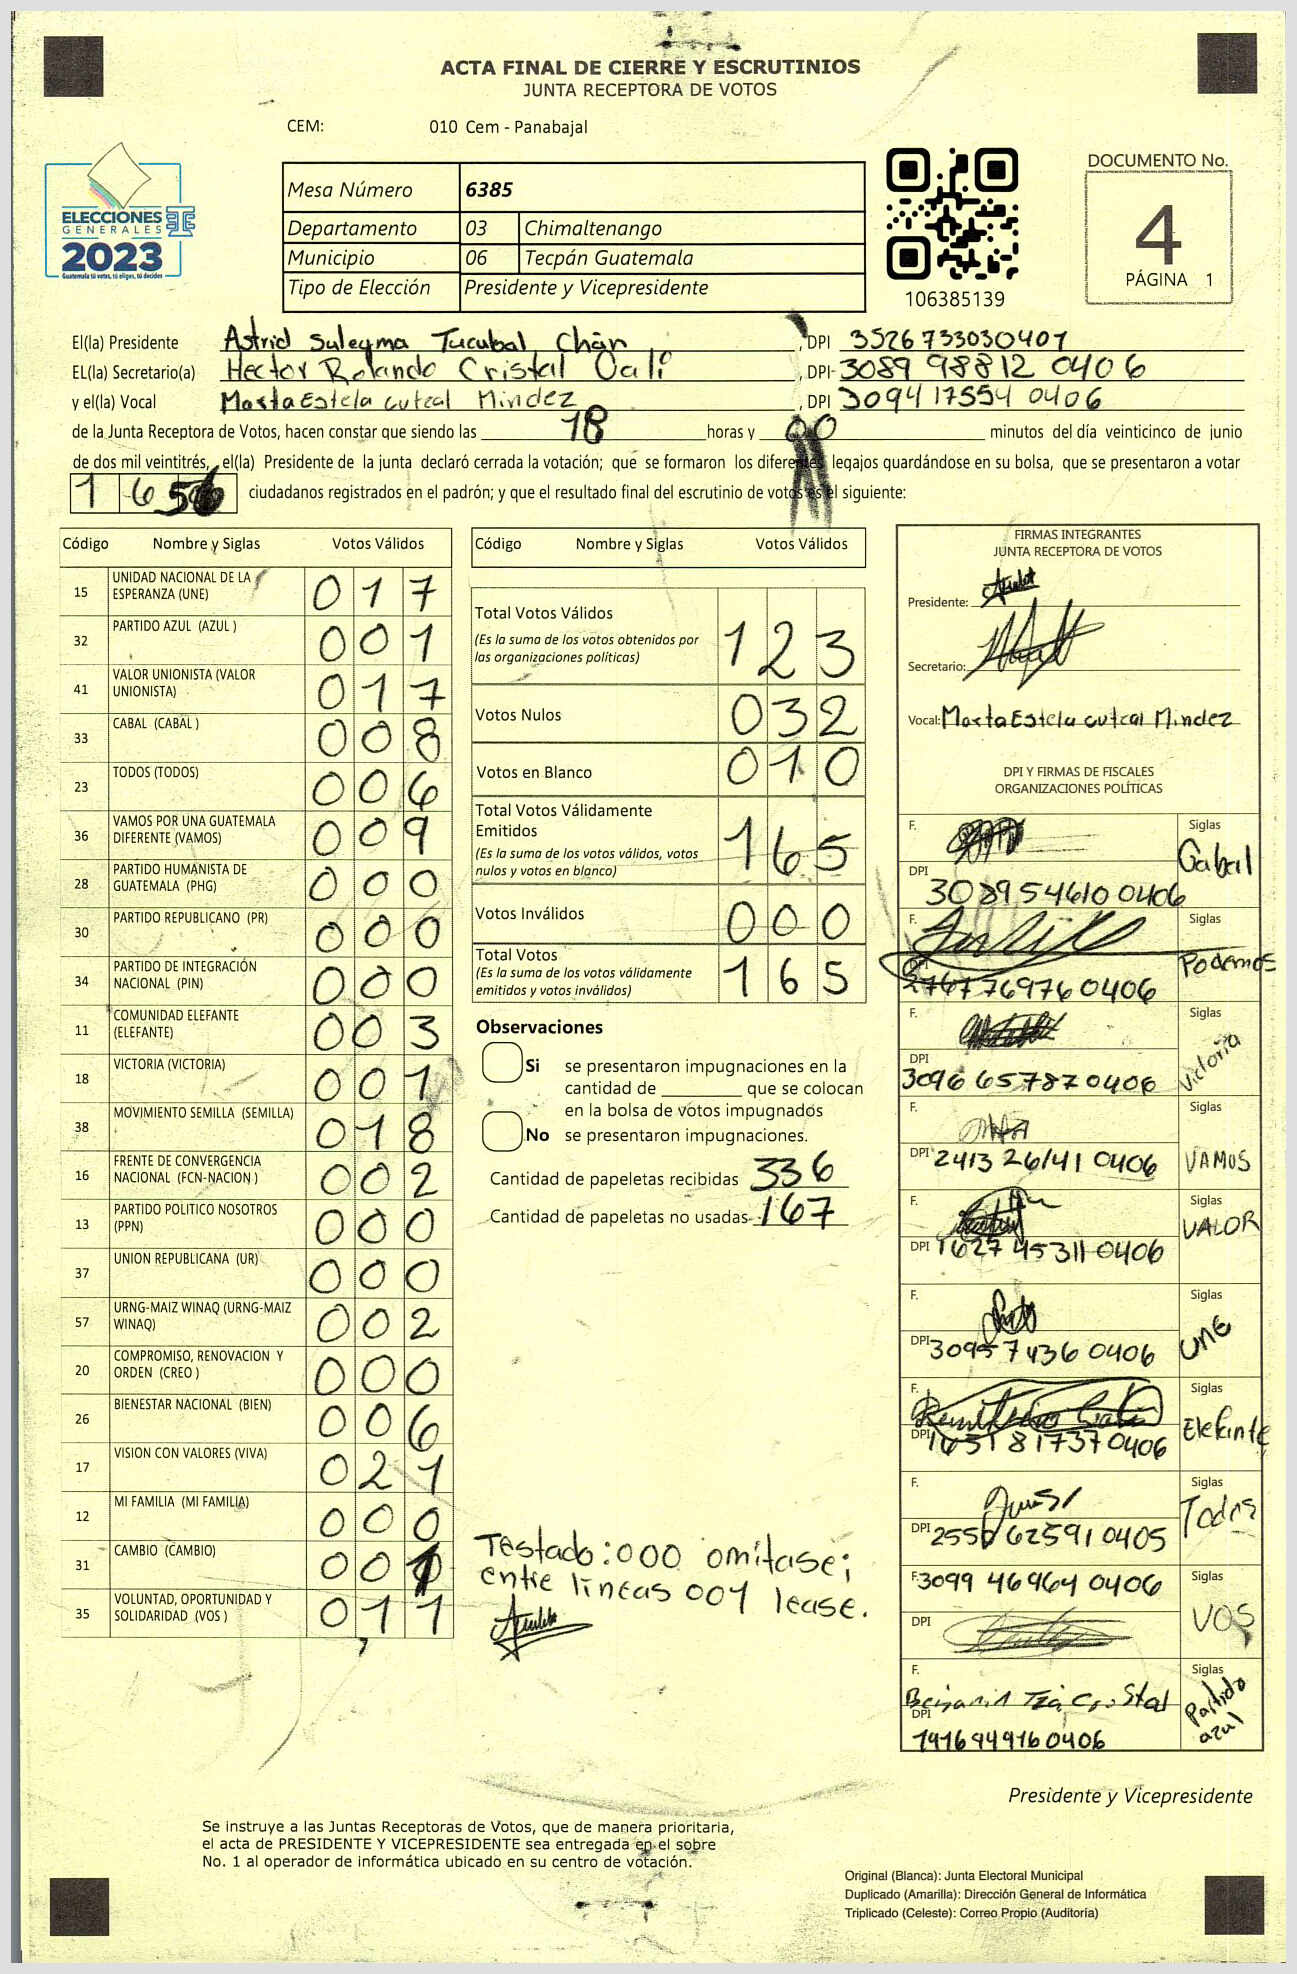 ACTA FINAL DE CIERRE Y ESCRUTINIOS
JUNTA RECEPTORA DE VOTOS
CEM: 010 Cem - Panabajal
DOCUMENTO No.
4
PÁGINA 1
ELECCIONES
GENERALES
2023
Guatemala tú votas, tú eliges, tú decides
Mesa Número 6385
Departamento 03 Chimaltenango
Municipio 06 Tecpán Guatemala
Tipo de Elección Presidente y Vicepresidente
106385139
El(la) Presidente Astrid Suleyma Tucubal Chán, DPI 3526733030407
EL(la) Secretario(a) Hector Rolando Cristal Oalí, DPI 3089 98812 0406
y el(la) Vocal MartaEstela cutcal Mindez, DPI 3094 17554 0406
de la Junta Receptora de Votos, hacen constar que siendo las 18 horas y 00 minutos del día veinticinco de junio
de dos mil veintitrés, el(la) Presidente de la junta declaró cerrada la votación; que se formaron los diferentes legajos guardándose en su bolsa, que se presentaron a votar
ciudadanos registrados en el padrón; y que el resultado final del escrutinio de votos es el siguiente:
Código Nombre y Siglas Votos Válidos
15 UNIDAD NACIONAL DE LA ESPERANZA (UNE) 0 1 7
32 PARTIDO AZUL (AZUL ) 0 0 1
41 VALOR UNIONISTA (VALOR UNIONISTA) 0 1 7
33 CABAL (CABAL ) 0 0 8
23 TODOS (TODOS) 0 0 6
36 VAMOS POR UNA GUATEMALA DIFERENTE (VAMOS) 0 0 9
28 PARTIDO HUMANISTA DE GUATEMALA (PHG) 0 0 0
30 PARTIDO REPUBLICANO (PR) 0 0 0
34 PARTIDO DE INTEGRACIÓN NACIONAL (PIN) 0 0 0
11 COMUNIDAD ELEFANTE (ELEFANTE) 0 0 3
18 VICTORIA (VICTORIA) 0 0 1
38 MOVIMIENTO SEMILLA (SEMILLA) 0 1 8
16 FRENTE DE CONVERGENCIA NACIONAL (FCN-NACION ) 0 0 2
13 PARTIDO POLITICO NOSOTROS (PPN) 0 0 0
37 UNION REPUBLICANA (UR) 0 0 0
57 URNG-MAIZ WINAQ (URNG-MAIZ WINAQ) 0 0 2
20 COMPROMISO, RENOVACION Y ORDEN (CREO ) 0 0 0
26 BIENESTAR NACIONAL (BIEN) 0 0 6
17 VISION CON VALORES (VIVA) 0 2 1
12 MI FAMILIA (MI FAMILIA) 0 0 0
31 CAMBIO (CAMBIO) 0 0 1
35 VOLUNTAD, OPORTUNIDAD Y SOLIDARIDAD (VOS ) 0 1 1
Código Nombre y Siglas Votos Válidos
Total Votos Válidos 1 2 3
(Es la suma de los votos obtenidos por
las organizaciones políticas)
Votos Nulos 0 3 2
Votos en Blanco 0 1 0
Total Votos Válidamente
Emitidos 1 6 5
(Es la suma de los votos válidos, votos
nulos y votos en blanco)
Votos Inválidos 0 0 0
Total Votos 1 6 5
(Es la suma de los votos válidamente
emitidos y votos inválidos)
Observaciones
Si se presentaron impugnaciones en la
cantidad de ________ que se colocan
en la bolsa de votos impugnados
No se presentaron impugnaciones.
Cantidad de papeletas recibidas 336
Cantidad de papeletas no usadas 167
Testado: 000 omitase;
entre lineas 001 lease.
FIRMAS INTEGRANTES
JUNTA RECEPTORA DE VOTOS
Presidente:
Secretario:
Vocal: MartaEstela cutcal Mindez
DPI Y FIRMAS DE FISCALES
ORGANIZACIONES POLÍTICAS
F. Siglas Cabal
DPI 308954610 0406
F. Siglas Podemos
276776976 0406
F. Siglas Victoria
DPI 3096 65787 0406
F. Siglas VAMOS
DPI 2413 26141 0406
F. Siglas VALOR
DPI 1627 45311 0406
F. Siglas UNE
DPI 3095 7436 0 0406
F. Siglas Elefante
DPI 1651 81737 0406
F. Siglas Todos
DPI 2550 62591 0405
F. 3099 46964 0406 Siglas VOS
DPI
F. Siglas Partido azul
DPI
1916949160406
Presidente y Vicepresidente
Se instruye a las Juntas Receptoras de Votos, que de manera prioritaria,
el acta de PRESIDENTE Y VICEPRESIDENTE sea entregada en el sobre
No. 1 al operador de informática ubicado en su centro de votación.
Original (Blanca): Junta Electoral Municipal
Duplicado (Amarilla): Dirección General de Informática
Triplicado (Celeste): Correo Propio (Auditoría)